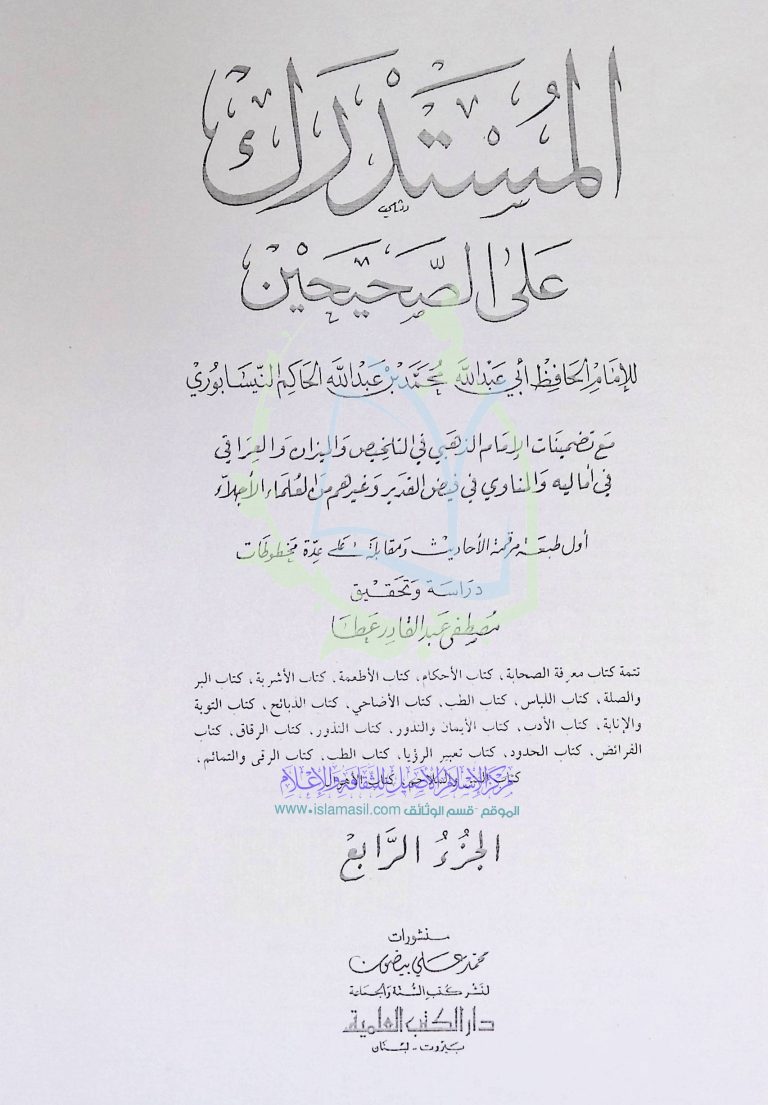 المُسْتَدْرَك
عَلى الصَّحِيحَيْن
للإمَام الحَافِظ أبي عَبْد اللَّه مُحَمَّد بْن عَبْد اللَّه الحَاكِم النّيسَابُوري
مَع تضمينَات الإمَام الذهَبي في التلخيص والميزان والعِرَاقي
في أماليه والمناوي في فيض القدير وغيرهم من العُلماء الأجلاّء
أول طبعَة مرقمة الأحاديث ومقابلة على عِدّة مخطوطات
دراسَة وتحقيق
مصطفى عبد القادر عَطا
تتمة كتاب معرفة الصحابة، كتاب الأحكام، كتاب الأطعمة، كتاب الأشربة، كتاب البر
والصلة، كتاب اللباس، كتاب الطب، كتاب الأضاحي، كتاب الذبائح، كتاب التوبة
والإنابة، كتاب الأدب، كتاب الأيمان والنذور، كتاب النذور، كتاب الرقاق، كتاب
الفرائض، كتاب الحدود، كتاب تعبير الرؤيا، كتاب الطب، كتاب الرقى والتمائم،
كتاب الفتن والملاحم، كتاب الأهوال
مركز الإسلام الأصيل للثقافة والإعلام
الموقع -قسم الوثائق www.islamasil.com
الجُزءُ الرَّابع
منشورات
محمد علي بيضون
لنَشر كُتب السُّنة والجماعة
دار الكتب العلمية
بَيْروت - لبْنان